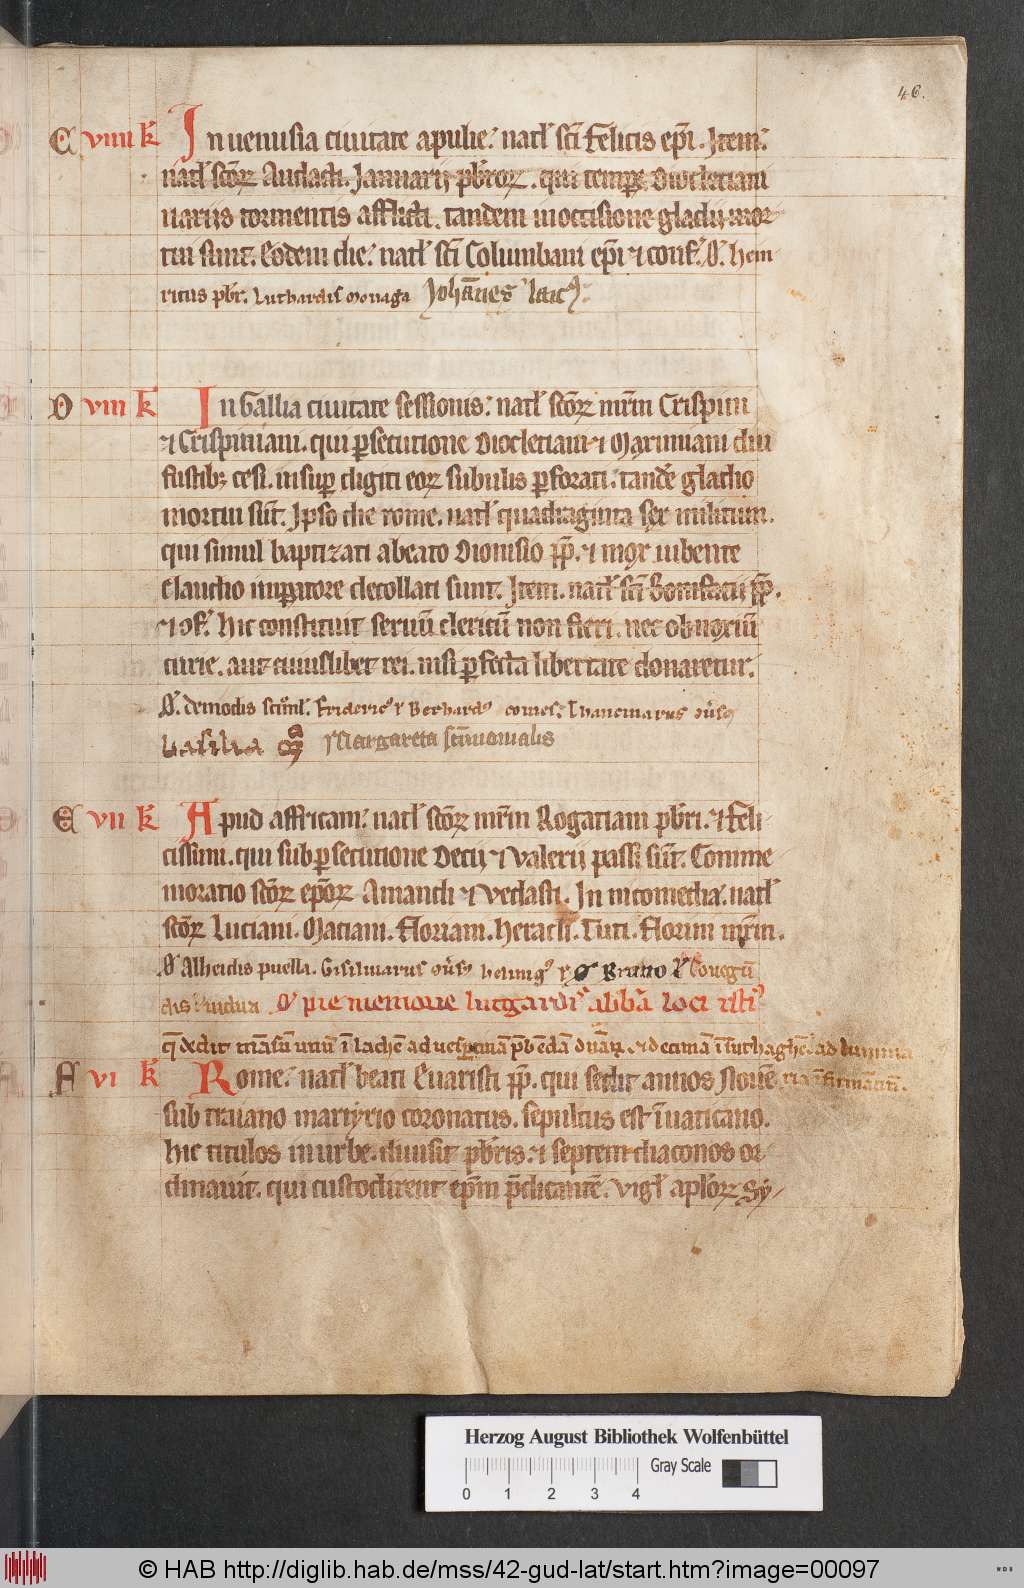 46.
C viiii kł In uenusia ciuitate apulie. natł sc̄i Felicis ep̄i. Item.
natł sc̄oꝝ Audacti. Januarij pb̄roꝝ. qui tempꝝ Diocletiani
uariis tormentis afflicti. tandem in occisione gladij mor
tui sunt. Eodem die. natł sc̄i Columbani ep̄i ⁊ conf. O. hein
ricus pb̄r. Luthardis monaga Joh̄anes laic⁹.
D viii kł In Gallia ciuitate sessionis. natł sc̄oꝝ mr̄m Crispini
⁊ Crispiniani. qui ꝑsecutione Diocletiani ⁊ Maximiani diu
fustibꝫ cesi. insuꝑ digiti eoꝝ subulis ꝑforati. tand̄e gladio
mortui sūt. Ipso die rome. natł quadraginta sex militum.
qui simul baptizati a beato Dionisio p̄p̄. ⁊ mox iubente
Claudio imꝑatore decollati sunt. Item. natł sc̄i Bonifacii p̄p̄.
⁊ ꝯf. hic constituit seruū clericū non fieri. nec obnoxiū
curie. aut cuiuslibet rei. nisi ꝑfecta libertate donaretur.
O. demodis Frideric⁹ ⁊ Berhard⁹ comes. Thancmarus
basilia Margareta sc̄imonialis
E vii kł Apud affricam. natł sc̄oꝝ mr̄m Rogatiani pb̄ri. ⁊ Feli
cissimi. qui sub ꝑsecutione Decij ⁊ Valerij passi sūt. Comme
moratio sc̄oꝝ ep̄oꝝ Amandi ⁊ Vedasti. In nicomedia. natł
sc̄oꝝ Luciani. Marciani. Floriani. Heracli. Titi. Florini mr̄m.
O Alheidis puella. Gisilmarus Bruno Conegū
dis uidua O pie memorie lutgardis abb̄a loci isti⁹
q̄ dedit māsū unū ī lachē ad ⁊ decimā ad lumina
F vi kł Rome. natł beati Euaristi p̄p̄. qui sedit annos Nouē
sub traiano martyrio coronatus. sepultus est ī uaticano.
hic titulos in urbe. diuisit pb̄ris. ⁊ septem diaconos or
dinauit. qui custodirent ep̄m p̄dicantē. vigł apłoꝝ Sy
Herzog August Bibliothek Wolfenbüttel
Gray Scale
0 1 2 3 4
© HAB http://diglib.hab.de/mss/42-gud-lat/start.htm?image=00097